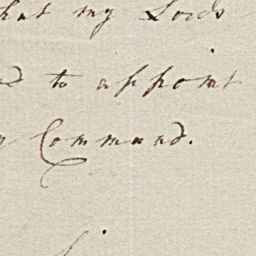 that my Lords
to appoint
Command.